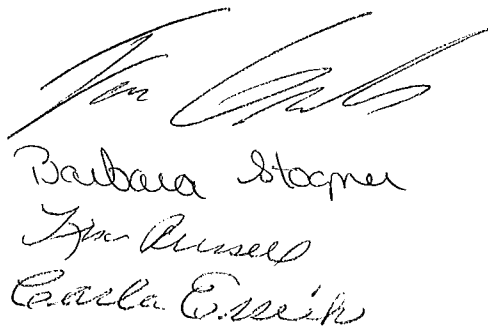 Barbara Stogner
Kim Russell
Carla Essick